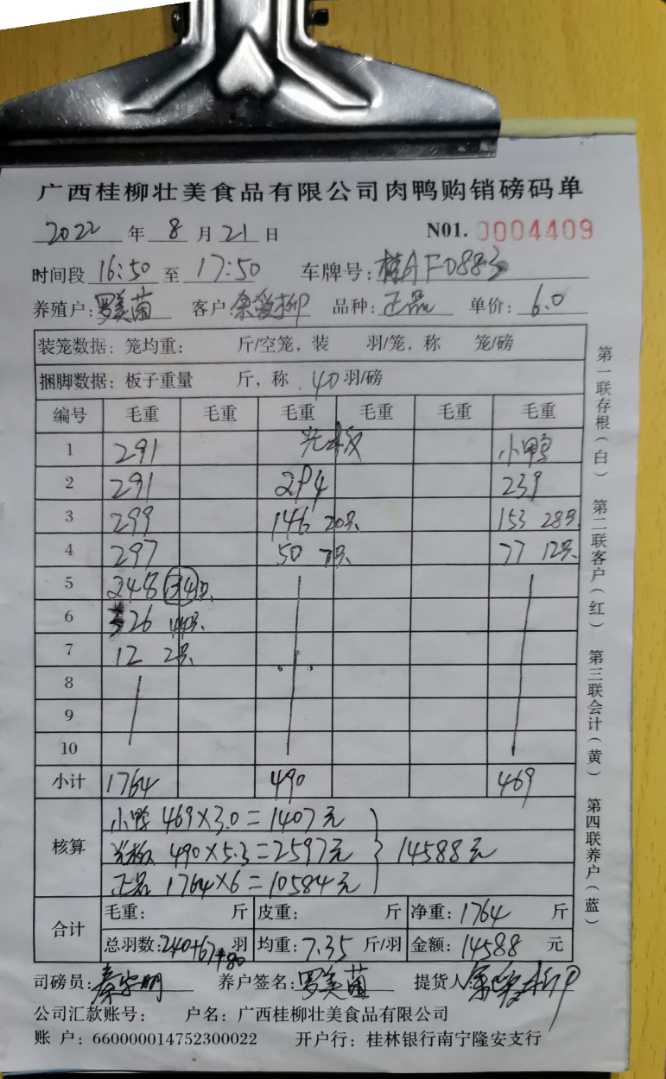 广西桂柳壮美食品有限公司肉鸭购销磅码单
2022 年 8 月 21 日 N01. 0004409
时间段 16:50 至 17:50 车牌号: 桂AF0883
养殖户: 罗美菌 客户: 余爱柳 品种: 正品 单价: 6.0
装笼数据: 笼均重: 斤/空笼, 装 羽/笼, 称 笼/磅
捆脚数据: 板子重量 斤, 称 40 羽/磅
编号 毛重 毛重 毛重 毛重 毛重 毛重
1 291 光板 小鸭
2 291 294 239
3 299 146 20只 153 28只
4 297 50 7只 77 12只
5 248 34只
6 26
7 12 2只
8
9
10
小计 1764 490 469
核算
小鸭 469×3.0=1407元
光板 490×5.3=2597元 } 14588元
正品 1764×6=10584元
合计
毛重: 斤 皮重: 斤 净重: 1764 斤
总羽数: 240+67+80 羽 均重: 7.35 斤/羽 金额: 14588 元
司磅员: 秦宗明 养户签名: 罗美菌 提货人 余爱柳
公司汇款账号: 户名: 广西桂柳壮美食品有限公司
账 户: 660000014752300022 开户行: 桂林银行南宁隆安支行
第一联存根(白) 第二联客户(红) 第三联会计(黄) 第四联养户(蓝)